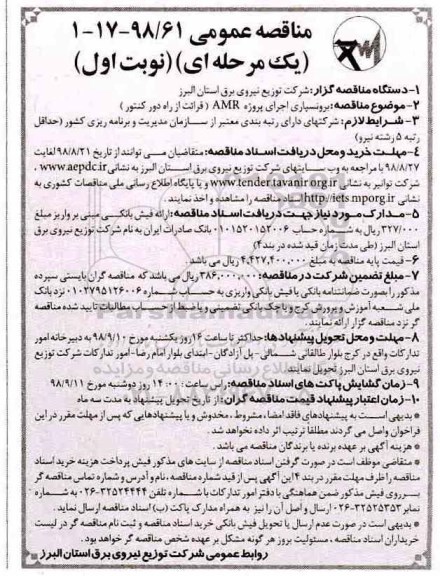 مناقصه عمومی ۹۸/۶۱-۱۷-۱
(یک مرحله ای) (نوبت اول)
۱- دستگاه مناقصه گزار: شرکت توزیع نیروی برق استان البرز
۲- موضوع مناقصه: برونسپاری اجرای پروژه AMR ( قرائت از راه دور کنتور )
۳- شرایط لازم: شرکتهای دارای رتبه بندی معتبر از سازمان مدیریت و برنامه ریزی کشور (حداقل
رتبه ۵ رشته نیرو)
۴- مهلت خرید و محل دریافت اسناد مناقصه: متقاضیان می توانند از تاریخ ۹۸/۸/۲۱ لغایت
۹۸/۸/۲۷ با مراجعه به وب سایتهای شرکت توزیع نیروی برق استان البرز به نشانی www.aepdc.ir،
شرکت توانیر به نشانی www.tender.tavanir.org.ir و یا پایگاه اطلاع رسانی ملی مناقصات کشوری به
نشانی http://iets.mporg.ir اسناد مناقصه را مشاهده و اخذ نمایند.
۵- مدارک مورد نیاز جهت دریافت اسناد مناقصه: ارائه فیش بانکی مبنی بر واریز مبلغ
۳۲۷/۰۰۰ ریال به شماره حساب ۰۱۰۱۵۲۰۱۵۲۰۰۶ بانک صادرات ایران به نام شرکت توزیع نیروی برق
استان البرز (طی مدت زمان قید شده در بند ۴)
۶- قیمت پایه مناقصه به مبلغ ۴,۴۲۷,۴۰۰,۰۰۰ ریال می باشد.
۷- مبلغ تضمین شرکت در مناقصه: ۳۸۶,۰۰۰,۰۰۰ ریال می باشد که مناقصه گران بایستی سپرده
مذکور را بصورت ضمانتنامه بانکی یا فیش بانکی واریزی به حساب شماره ۰۱۰۲۷۹۵۱۲۶۰۰۶ نزد بانک
ملی شعبه آموزش و پرورش کرج و یا چک بانکی تضمینی و یا ضبط از حساب مطالبات تایید شده مناقصه
گر نزد مناقصه گزار ارائه نمایند.
۸- مهلت و محل تحویل پیشنهادها: حداکثر تا ساعت ۱۶ روز یکشنبه مورخ ۹۸/۹/۱۰ به دبیرخانه امور
تدارکات واقع در کرج بلوار طالقانی شمالی- پل آزادگان- ابتدای بلوار امام رضا- امور تدارکات شرکت توزیع
نیروی برق استان البرز تحویل نمایند.
۹- زمان گشایش پاکت های اسناد مناقصه: راس ساعت ۱۴:۰۰ روز دوشنبه مورخ ۹۸/۹/۱۱
۱۰- زمان اعتبار پیشنهاد قیمت مناقصه گران: از تاریخ تحویل پیشنهاد به مدت سه ماه
* بدیهی است به پیشنهادهای فاقد امضاء، مشروط، مخدوش و یا پیشنهادهایی که پس از مهلت مقرر در این
فراخوان واصل می گردند مطلقاً ترتیب اثر داده نخواهد شد.
* هزینه آگهی بر عهده برنده یا برندگان مناقصه می باشد.
* متقاضی موظف است در صورت گرفتن اسناد مناقصه از سایت های مذکور فیش پرداخت هزینه خرید اسناد
مناقصه را ظرف مهلت مقرر در بند ۴ این آگهی پس از قید شماره مناقصه، نام و آدرس و شماره تماس مناقصه گر
بر روی فیش مذکور ضمن هماهنگی با دفتر امور تدارکات با شماره تلفن ۰۲۶-۳۲۵۲۴۴۴۴ به شماره
نمابر ۰۲۶-۳۲۵۲۵۳۵۳ ارسال و اصل آن را نیز به همراه مدارک پاکت (ب) اسناد مناقصه ارسال نماید.
* بدیهی است در صورت عدم ارسال یا تحویل فیش بانکی خرید اسناد مناقصه و ثبت نام مناقصه گر در لیست
خریداران اسناد مناقصه، مسئولیت بروز هر گونه مشکل بر عهده شخص مناقصه گر خواهد بود.
روابط عمومی شرکت توزیع نیروی برق استان البرز